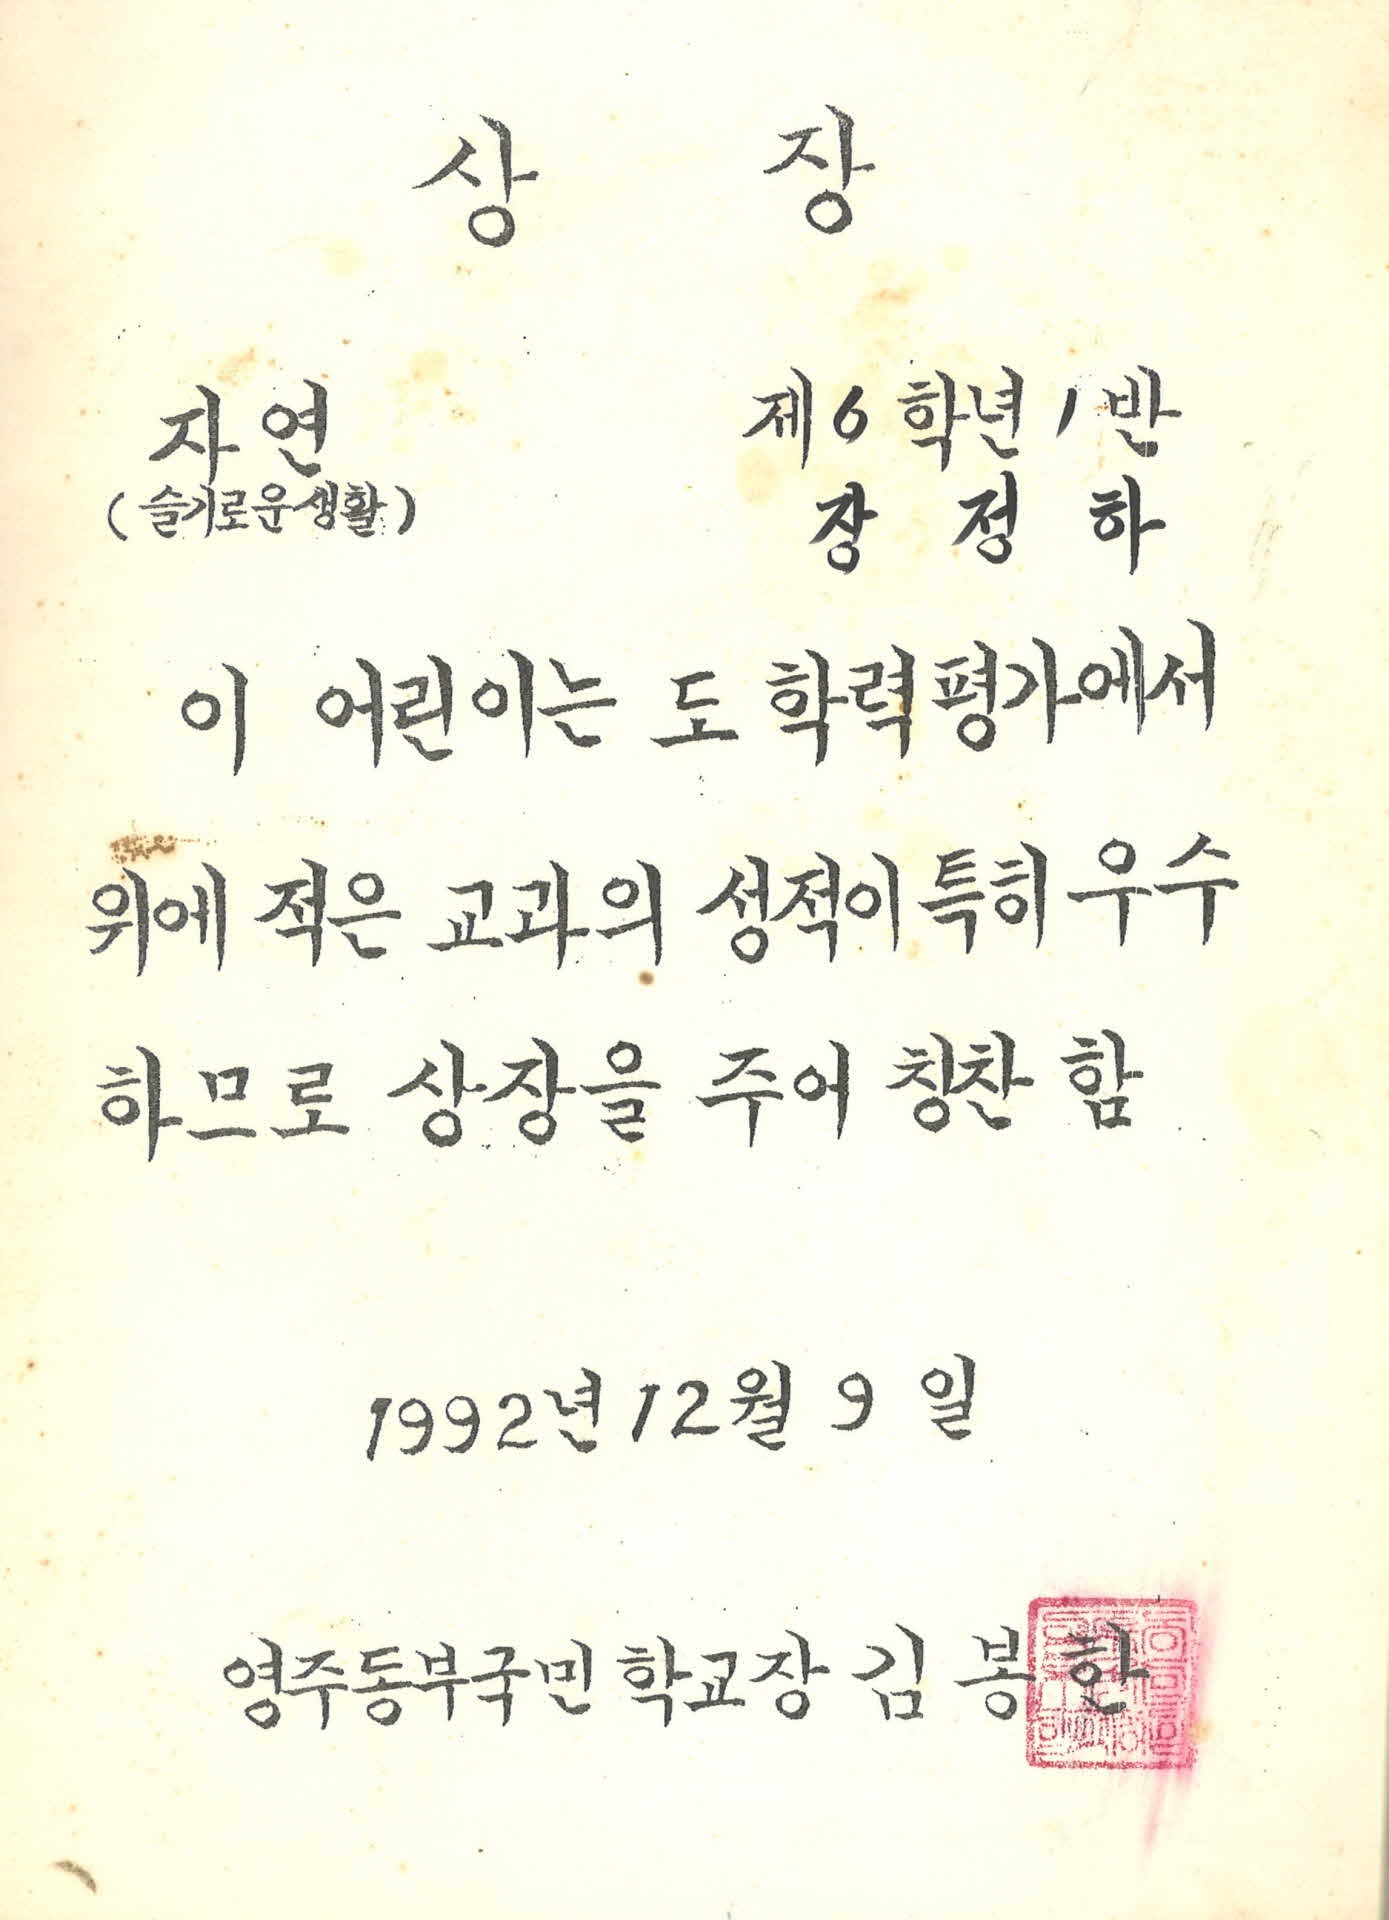 상 장
자연 제6학년1반
(슬기로운생활) 장 정 하
이 어린이는 도 학력평가에서
위에 적은 교과의 성적이 특히 우수
하므로 상장을 주어 칭찬 함
1992년 12월 9 일
영주동부국민 학교장 김 봉 한